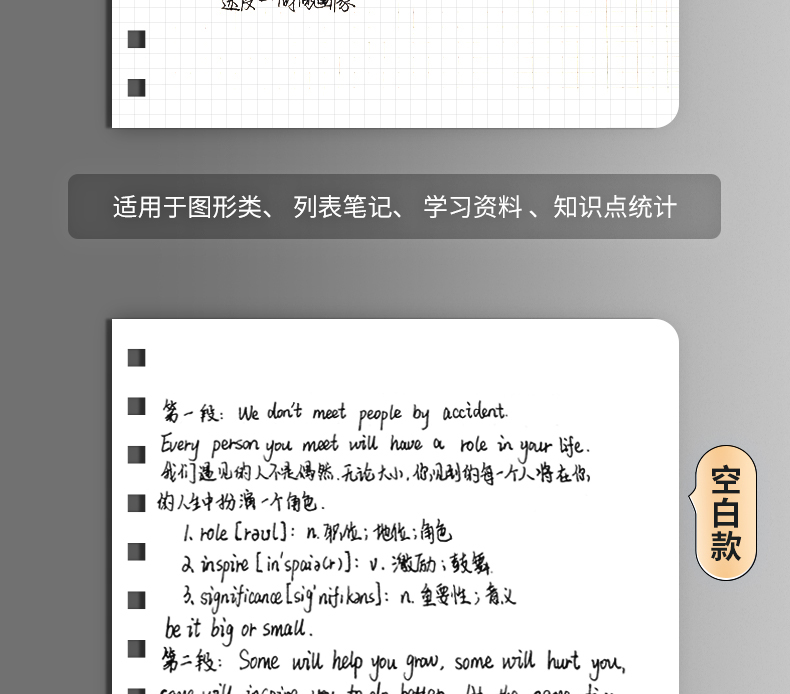 适用于图形类、 列表笔记、 学习资料 、知识点统计
第一段: We don't meet people by accident.
Every person you meet will have a role in your life.
我们遇见的人不是偶然.无论大小,你见到的每一个人将在你,
的人生中扮演一个角色.
1. role [rəul]: n.职位; 地位;角色
2. inspire [in'spaiə(r)]: v. 激励; 鼓舞
3. significance[sig'nifikəns]: n. 重要性; 意义
be it big or small.
第二段: Some will help you grow, some will hurt you,
some will inspire you to do better. At the same
空白款